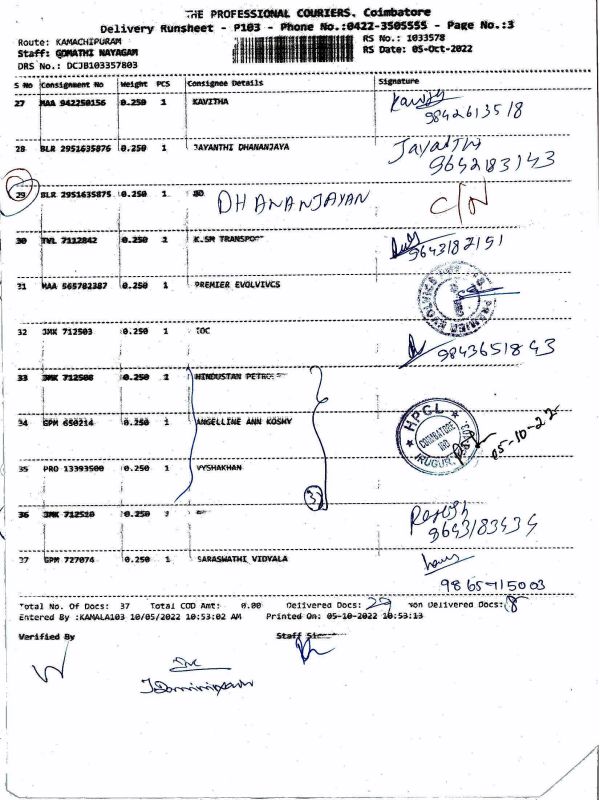 THE PROFESSIONAL COURIERS. Coimbatore
Delivery Runsheet - P103 - Phone No.:0422-3505555 - Page No.:3
Route: KAMACHIPURAM RS No.: 1033578
Staff: GOMATHI NAYAGAM RS Date: 05-Oct-2022
DRS No.: DCJB103357803
S No Consignment No Weight PCS Consignee Details Signature
27 MAA 942250156 0.250 1 KAVITHA
9842613518
28 BLR 2951635876 0.250 1 JAYANTHI DHANANJAYA Jayanthi
9642183143
29 BLR 2951635875 0.250 1 DHANANJAYAN C/N
30 TVL 7112842 0.250 1 K.SM TRANSPORT
9643182151
31 MAA 565782387 0.250 1 PREMIER EVOLVIVCS
32 JMK 712503 0.250 1 IOC
9843651843
33 JMK 712508 0.250 1 HINDUSTAN PETRO
34 GPM 650214 0.250 1 ANGELLINE ANN KOSHY HPCL COIMBATORE IRUGUR 05-10-22
35 PRO 13393500 0.250 1 VYSHAKHAN
3
36 JMK 712510 0.250 1
9643183434
37 GPM 727074 0.250 1 SARASWATHI VIDYALA
9865715003
Total No. Of Docs: 37 Total COD Amt: 0.00 Delivered Docs: 29 Non Delivered Docs: 8
Entered By :KAMALA103 10/05/2022 10:53:02 AM Printed On: 05-10-2022 10:53:13
Verified By Staff